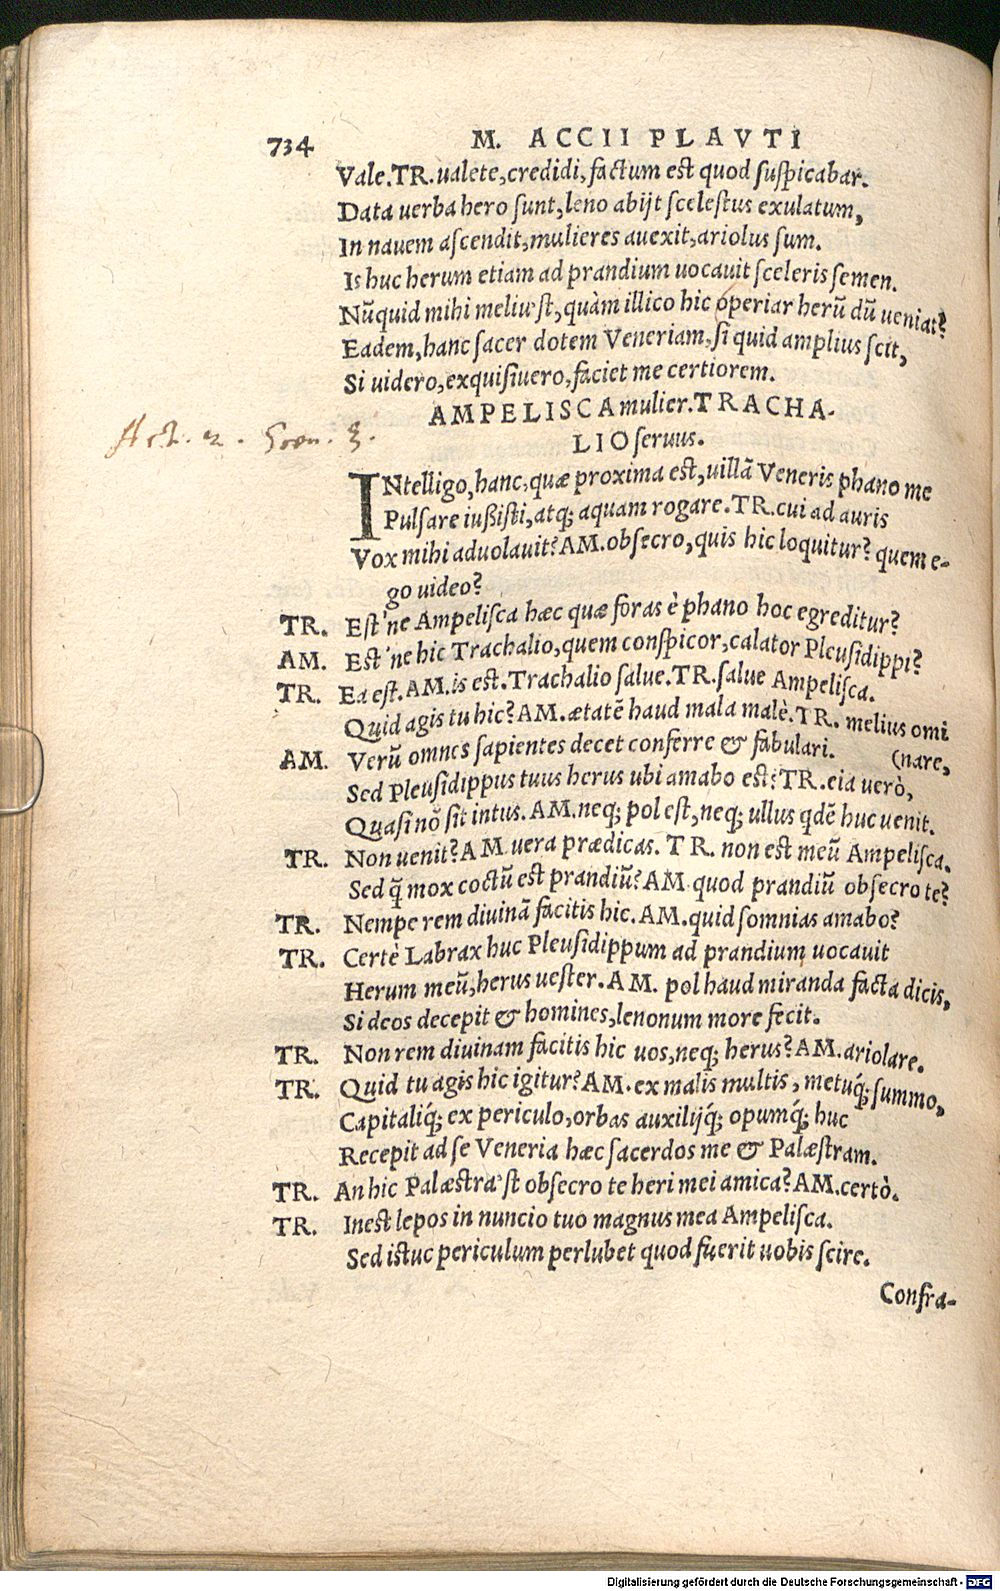 734 M. ACCII PLAVTI
Vale.TR.ualete,credidi,factum est quod suspicabar.
Data uerba hero sunt,leno abijt scelestus exulatum,
In nauem ascendit,mulieres auexit,ariolus sum.
Is huc herum etiam ad prandium uocauit sceleris semen.
Nũquid mihi meliu'st,quàm illico hic operiar herũ dũ ueniat?
Eadem,hanc sacer dotem Veneriam,si quid amplius scit,
Si uidero,exquisiuero,faciet me certiorem.
AMPELISCA mulier.TRACHA-
LIO seruus.
Act. 2. Scen. 3.
INtelligo,hanc,quæ proxima est,uillã Veneris phano me
Pulsare iußisti,atq; aquam rogare.TR.cui ad auris
Vox mihi aduolauit?AM.obsecro,quis hic loquitur? quem e-
go uideo?
TR. Est'ne Ampelisca hæc quæ foras è phano hoc egreditur?
AM. Est'ne hic Trachalio,quem conspicor,calator Pleusidippi?
TR. Ea est.AM.is est.Trachalio salue.TR.salue Ampelisca.
Quid agis tu hic?AM.ætatẽ haud mala malè.TR. melius omi
AM. Verũ omnes sapientes decet conferre & fabulari. (nare,
Sed Pleusidippus tuus herus ubi amabo est?TR.eia uerò,
Quasi nõ sit intus.AM.neq; pol est,neq; ullus qdẽ huc uenit.
TR. Non uenit?AM uera prædicas. TR. non est meũ Ampelisca.
Sed q̃ mox coctũ est prandiũ?AM quod prandiũ obsecro te?
TR. Nempe rem diuinã facitis hic.AM.quid somnias amabo?
TR. Certè Labrax huc Pleusidippum ad prandium uocauit
Herum meũ,herus uester.AM. pol haud miranda facta dicis,
Si deos decepit & homines,lenonum more fecit.
TR. Non rem diuinam facitis hic uos,neq; herus?AM.ariolare.
TR. Quid tu agis hic igitur?AM.ex malis multis, metuq́; summo,
Capitaliq́; ex periculo,orbas auxilijq́; opumq́; huc
Recepit ad se Veneria hæc sacerdos me & Palæstram.
TR. An hic Palæstra'st obsecro te heri mei amica?AM.certò.
TR. Inest lepos in nuncio tuo magnus mea Ampelisca.
Sed istuc periculum perlubet quod fuerit uobis scire.
Confra-
Digitalisierung gefördert durch die Deutsche Forschungsgemeinschaft - DFG